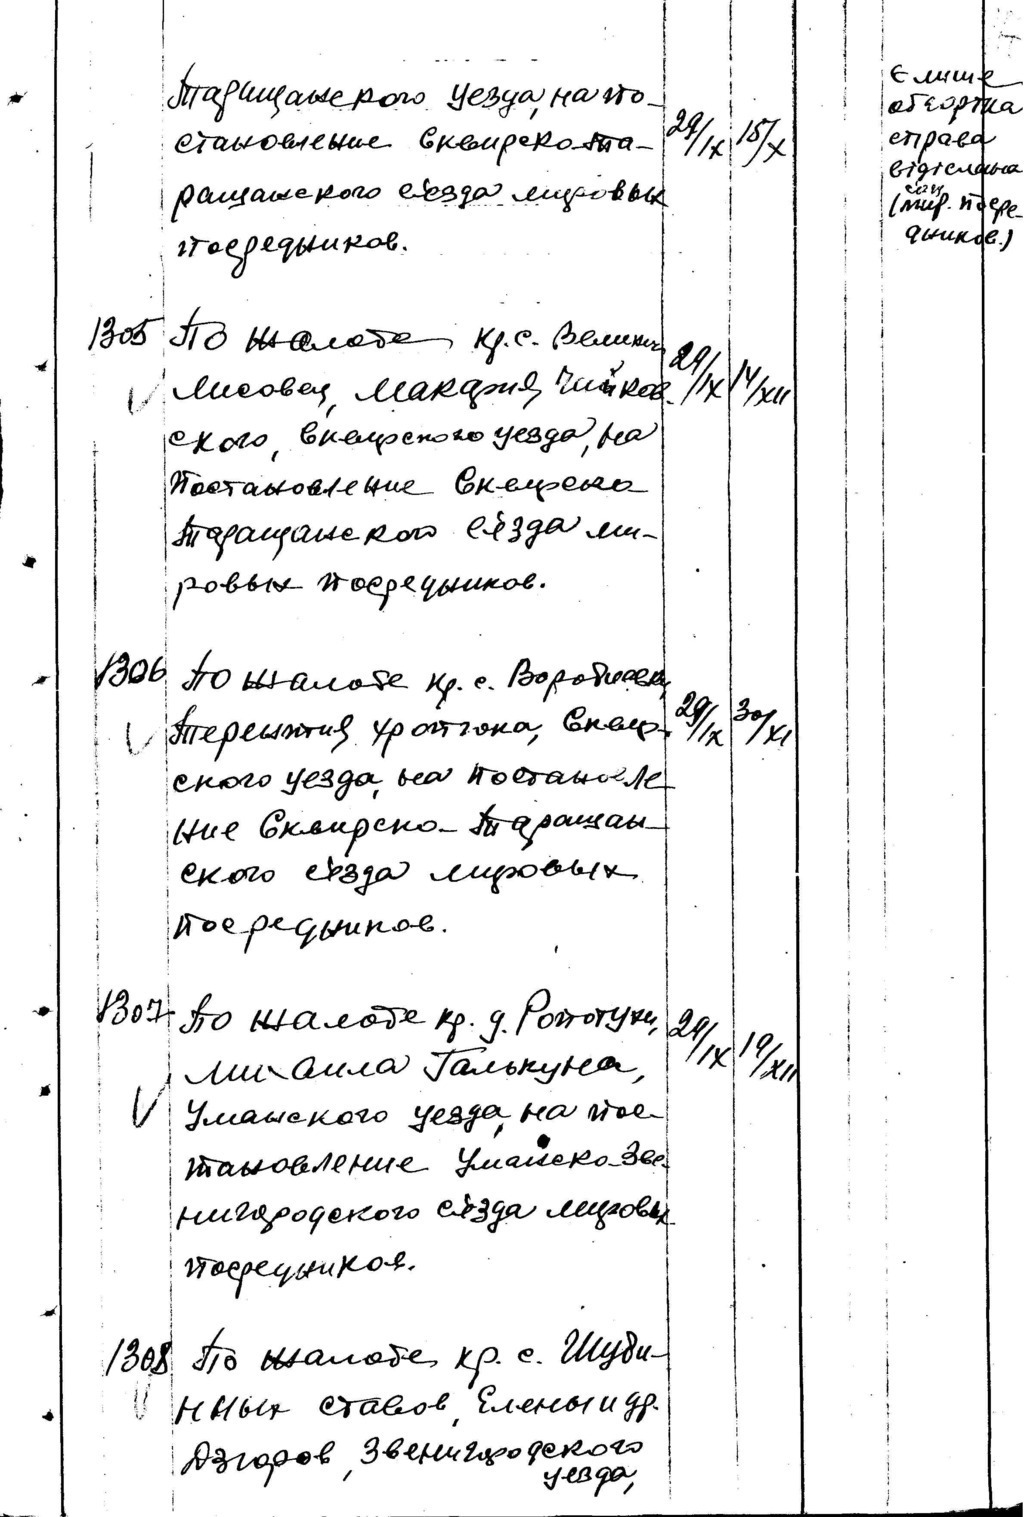 Таращанского уезда, на по-
становление Сквирско-Та-
ращанского съезда мировых
посредников.
29/IX 15/X
Є лише
обгортка
справа
відіслана
(мир. посре-
дников.)
1305 По жалобе кр. с. Велико
Лисовец, Макария Чайков-
ского, Сквирского уезда, на
постановление Сквирско
Таращанского съезда ми-
ровых посредников.
29/IX 14/XII
1306 По жалобе кр. с. Воробиевки,
Терентия, Сквир-
ского уезда, на постановле
ние Сквирско-Таращан-
ского съезда мировых
посредников.
29/IX 30/XI
1307 По жалобе кр. д.
Михаила Галькуна,
Уманского уезда, на пос-
тановление Уманско-Зве-
нигородского съезда мировых
посредников.
29/IX 19/XII
1308 По жалобе кр. с. Шуби-
нных ставов, Елены и др.
Дзюров, Звенигородского
уезда,